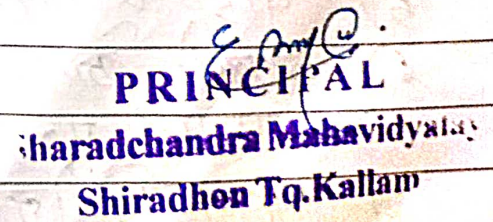 PRINCIPAL
Sharadchandra Mahavidyalay
Shiradhon Tq.Kallam